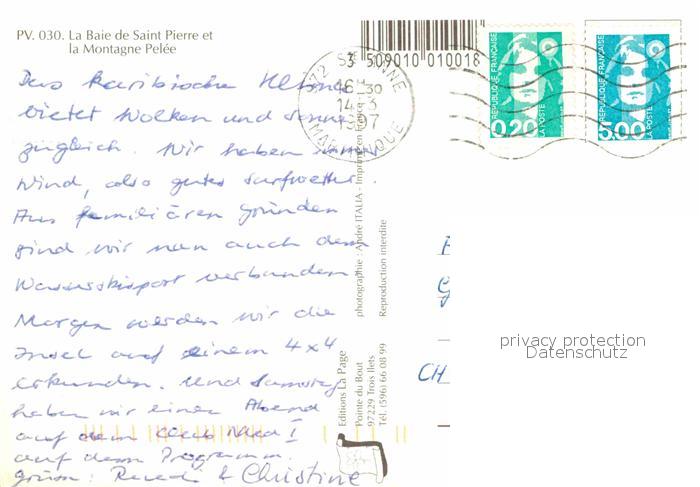 PV. 030. La Baie de Saint Pierre et
la Montagne Pelée
3 509010 010018
972 STE ANNE
16 H 30
14-3
1997
MARTINIQUE
REPUBLIQUE FRANÇAISE
0,20
LA POSTE
REPUBLIQUE FRANÇAISE
5,00
LA POSTE
Das karibische Klima
bietet Wolken und Sonne
zugleich. Wir haben immer
Wind, also gutes Surfwetter.
Aus familiären gründen
sind wir nun auch dem
Wasserskisport verbunden
Morgen werden wir die
Insel auf einem 4x4
erkunden. Und Samstag
haben wir einen Abend
auf dem Club Med I
auf dem Programm.
Ruedi & Christine
photographie : André ITALIA - Imprimé en France
Reproduction interdite
Editions La Page
Pointe du Bout
97229 Trois Ilets
Tél. (596) 66 08 99
CH
privacy protection
Datenschutz